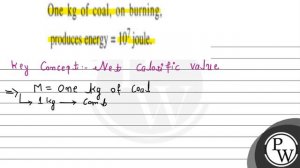 One kg of coal, on burning,
produces energy = 10⁷ joule.
Key Concept:- Net Calorific value
⇒ M = One kg of coal
↳ 1 kg → Comb
PW